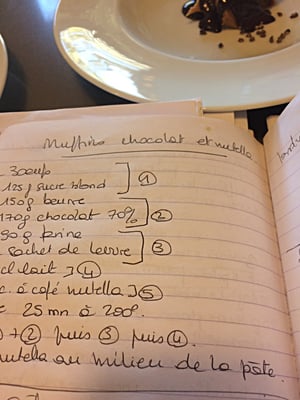 Muffins chocolat et nutella
3 oeufs
125g sucre blond ①
150g beurre
170g chocolat 70% ②
90g farine
sachet de levure ③
cl lait ④
c. à café nutella ⑤
25 mn à 200°.
+ ② puis ③ puis ④.
nutella au milieu de la pâte.